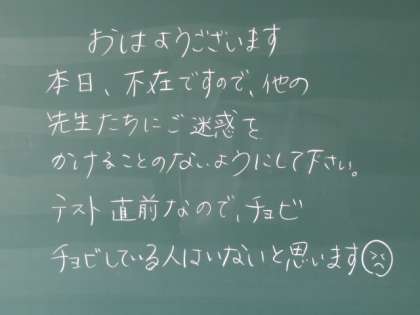 おはようございます
本日、不在ですので、他の
先生たちにご迷惑を
かけることのないようにして下さい。
テスト直前なので、チョビ
チョビしている人はいないと思います